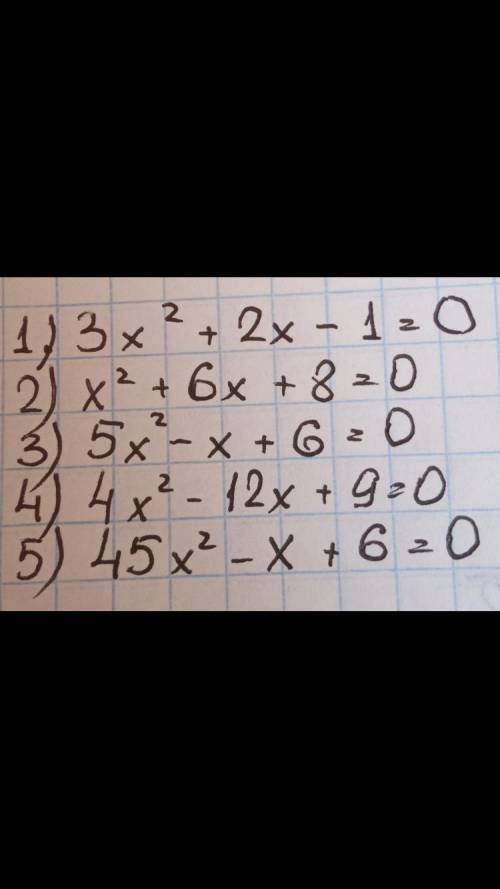 1) 3x² + 2x - 1 = 0
2) x² + 6x + 8 = 0
3) 5x² - x + 6 = 0
4) 4x² - 12x + 9 = 0
5) 45x² - x + 6 = 0